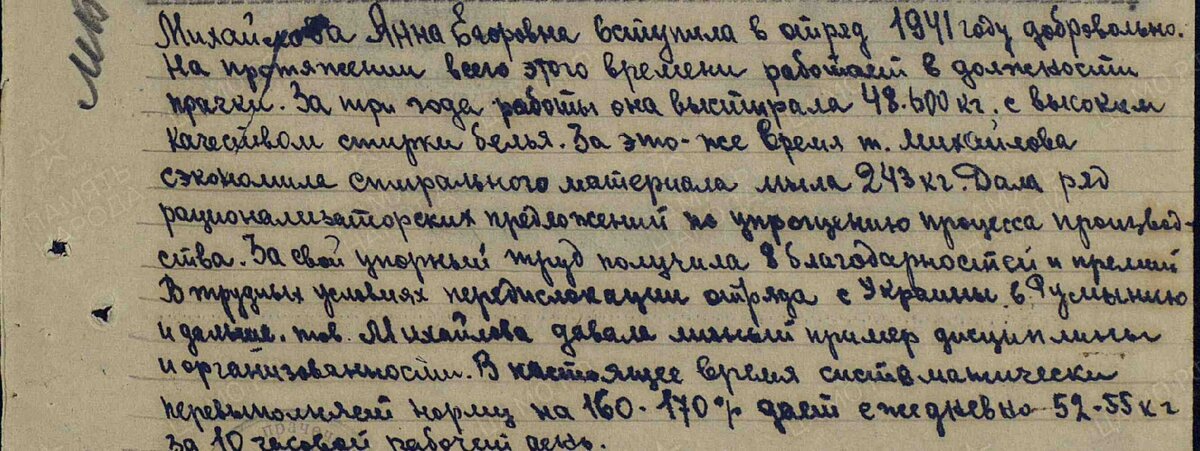 Михайлова Анна Егоровна вступила в отряд 1941 году добровольно.
На протяжении всего этого времени работает в должности
прачки. За три года работы она выстирала 48.600 кг. с высоким
качеством стирки белья. За это-же время т. Михайлова
сэкономила стирального материала мыла 243 кг. Дала ряд
рационализаторских предложений по упрощению процесса производ-
ства. За свой упорный труд получила 8 благодарностей и премий
В трудных условиях передислокации отряда с Украины в Румынию
и дальше. тов. Михайлова давала личный пример дисциплины
и организованности. В настоящее время систематически
перевыполняет норму на 160-170% дает ежедневно 52-55 кг
за 10 часовой рабочий день.